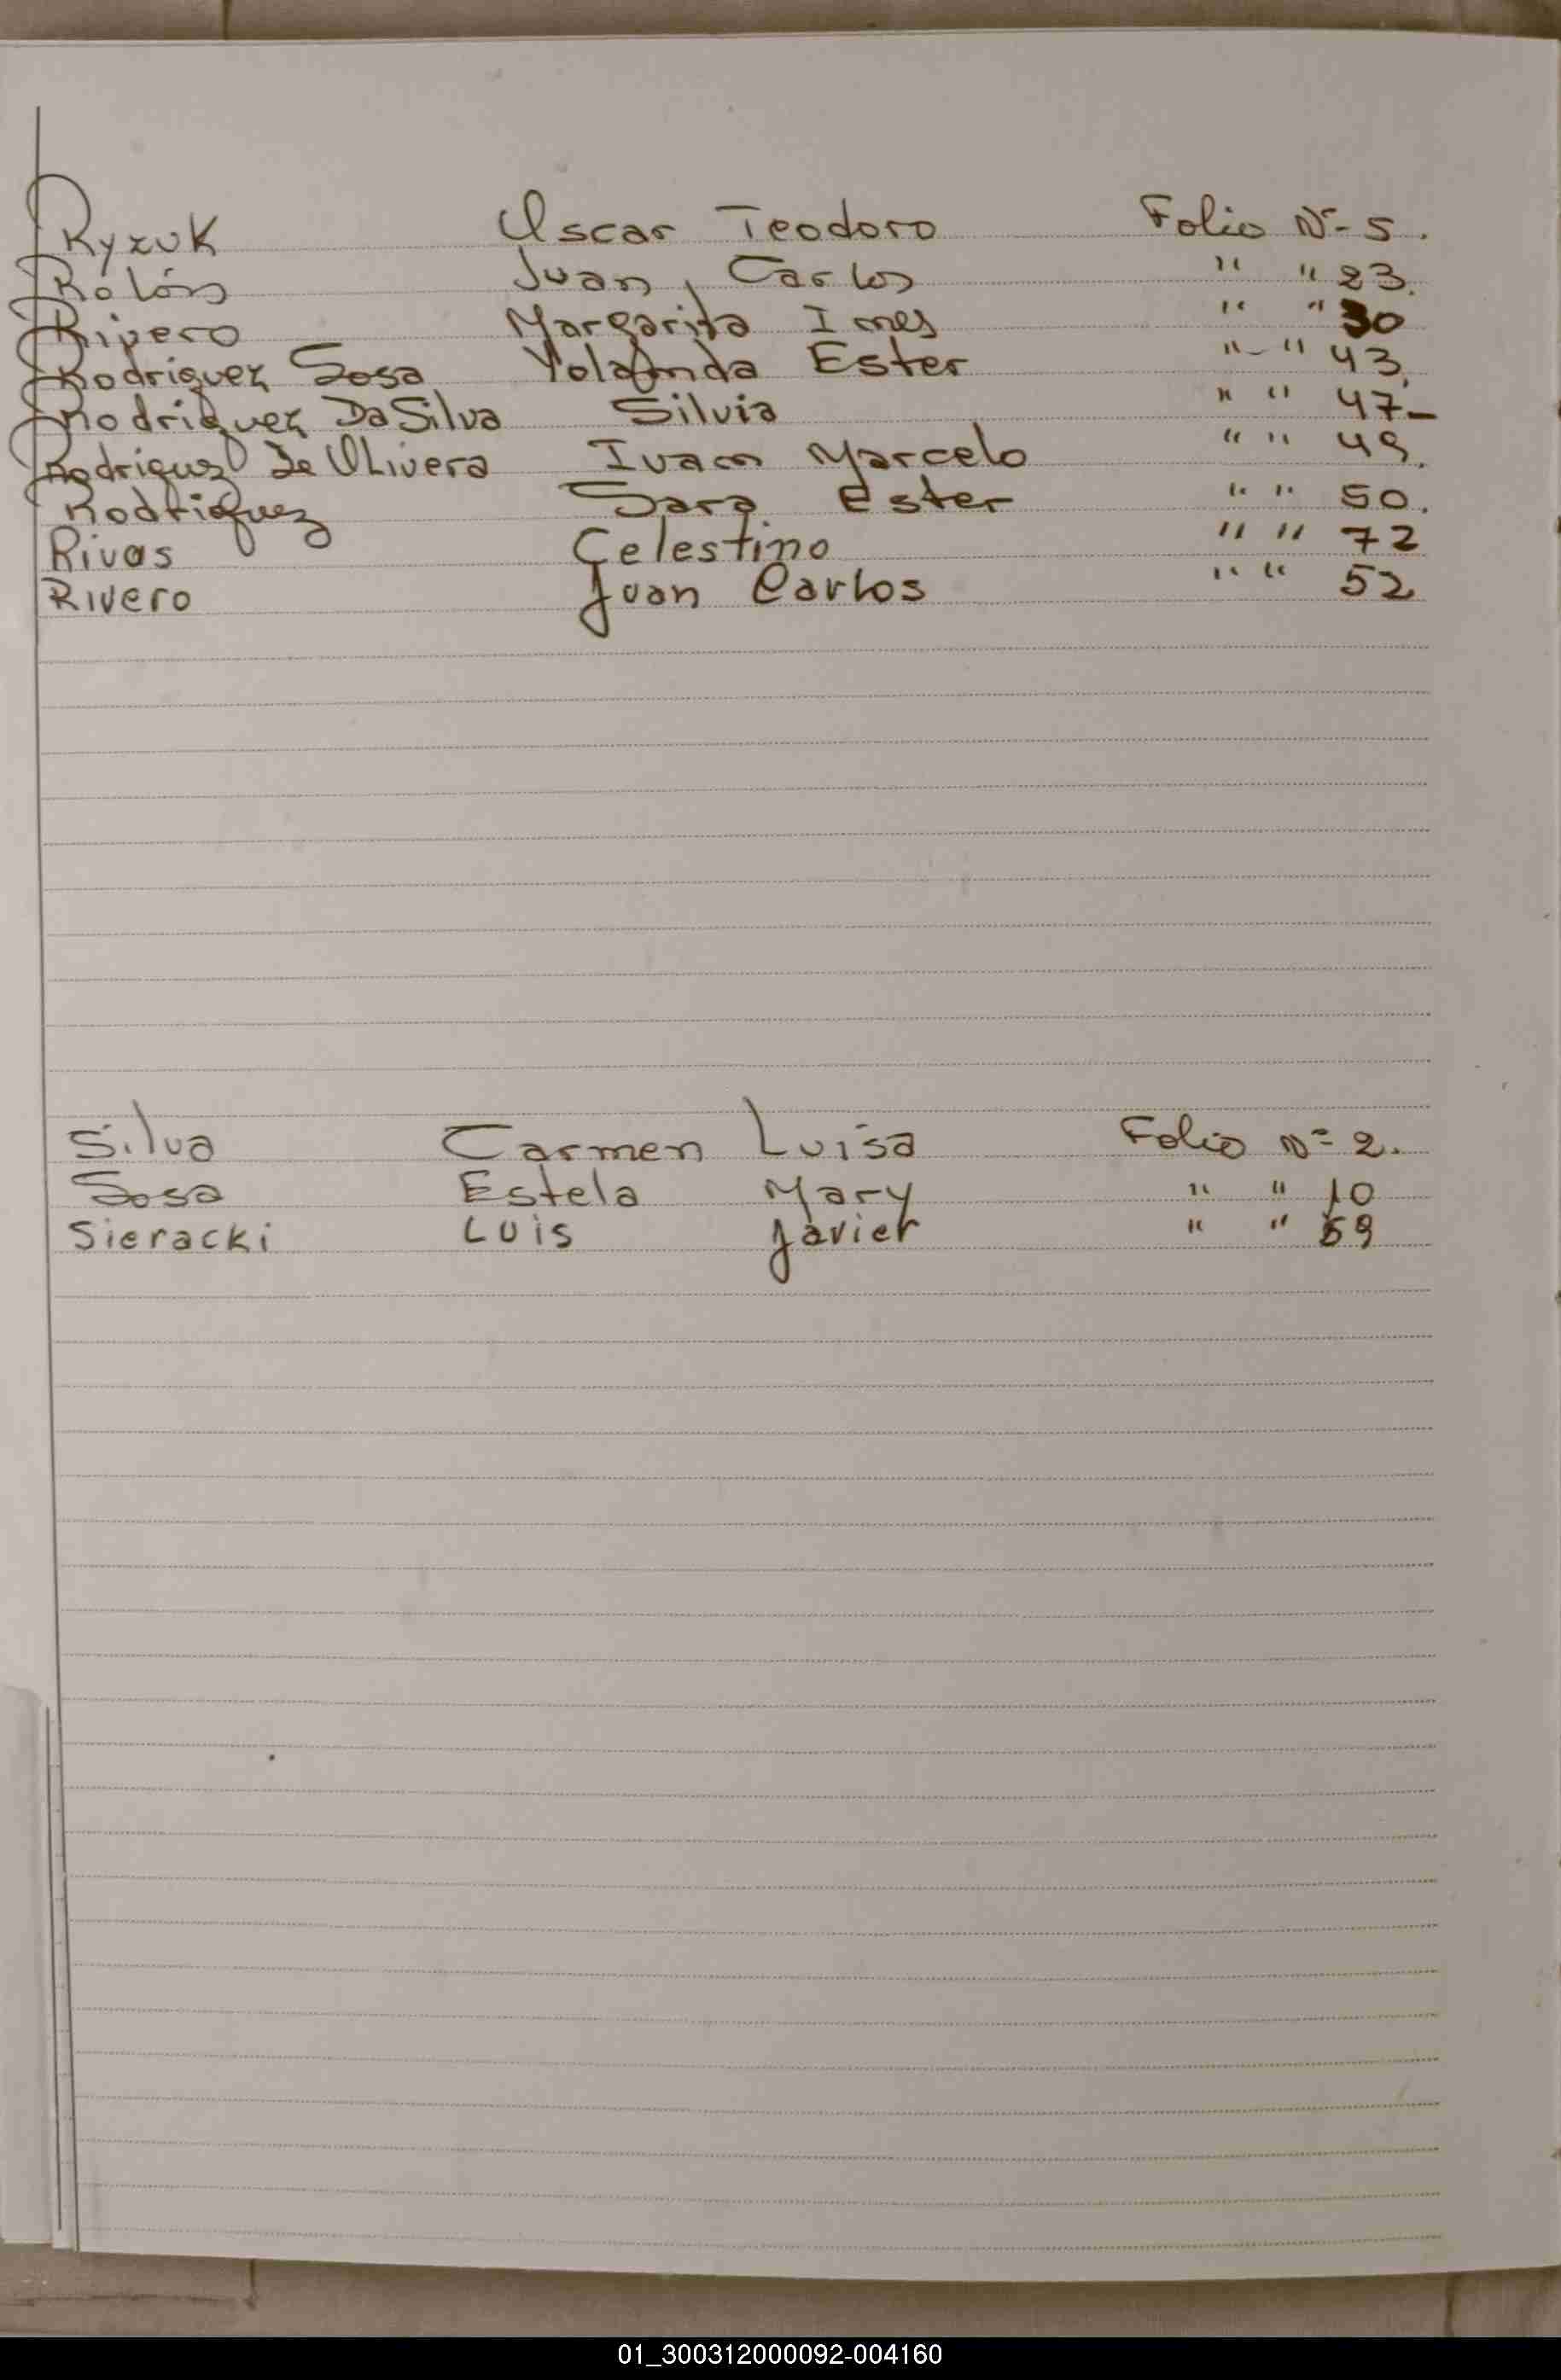 Ryzuk Oscar Teodoro Folio Nº- 5.
Rolón Juan Carlos " " 23.
Rivero Margarita Ines " " 30
Rodriguez Sosa Yolanda Ester " - " 43.
Rodriguez Da Silva Silvia " " 47-
Rodriguez De Olivera Ivan Marcelo " " 49.
Rodriguez Sara Ester " " 50.
Rivas Celestino " " 72
Rivero Juan Carlos " " 52
Silva Carmen Luisa Folio Nº 2.
Sosa Estela Mary " " 10
Sieracki Luis Javier " "
01_300312000092-004160